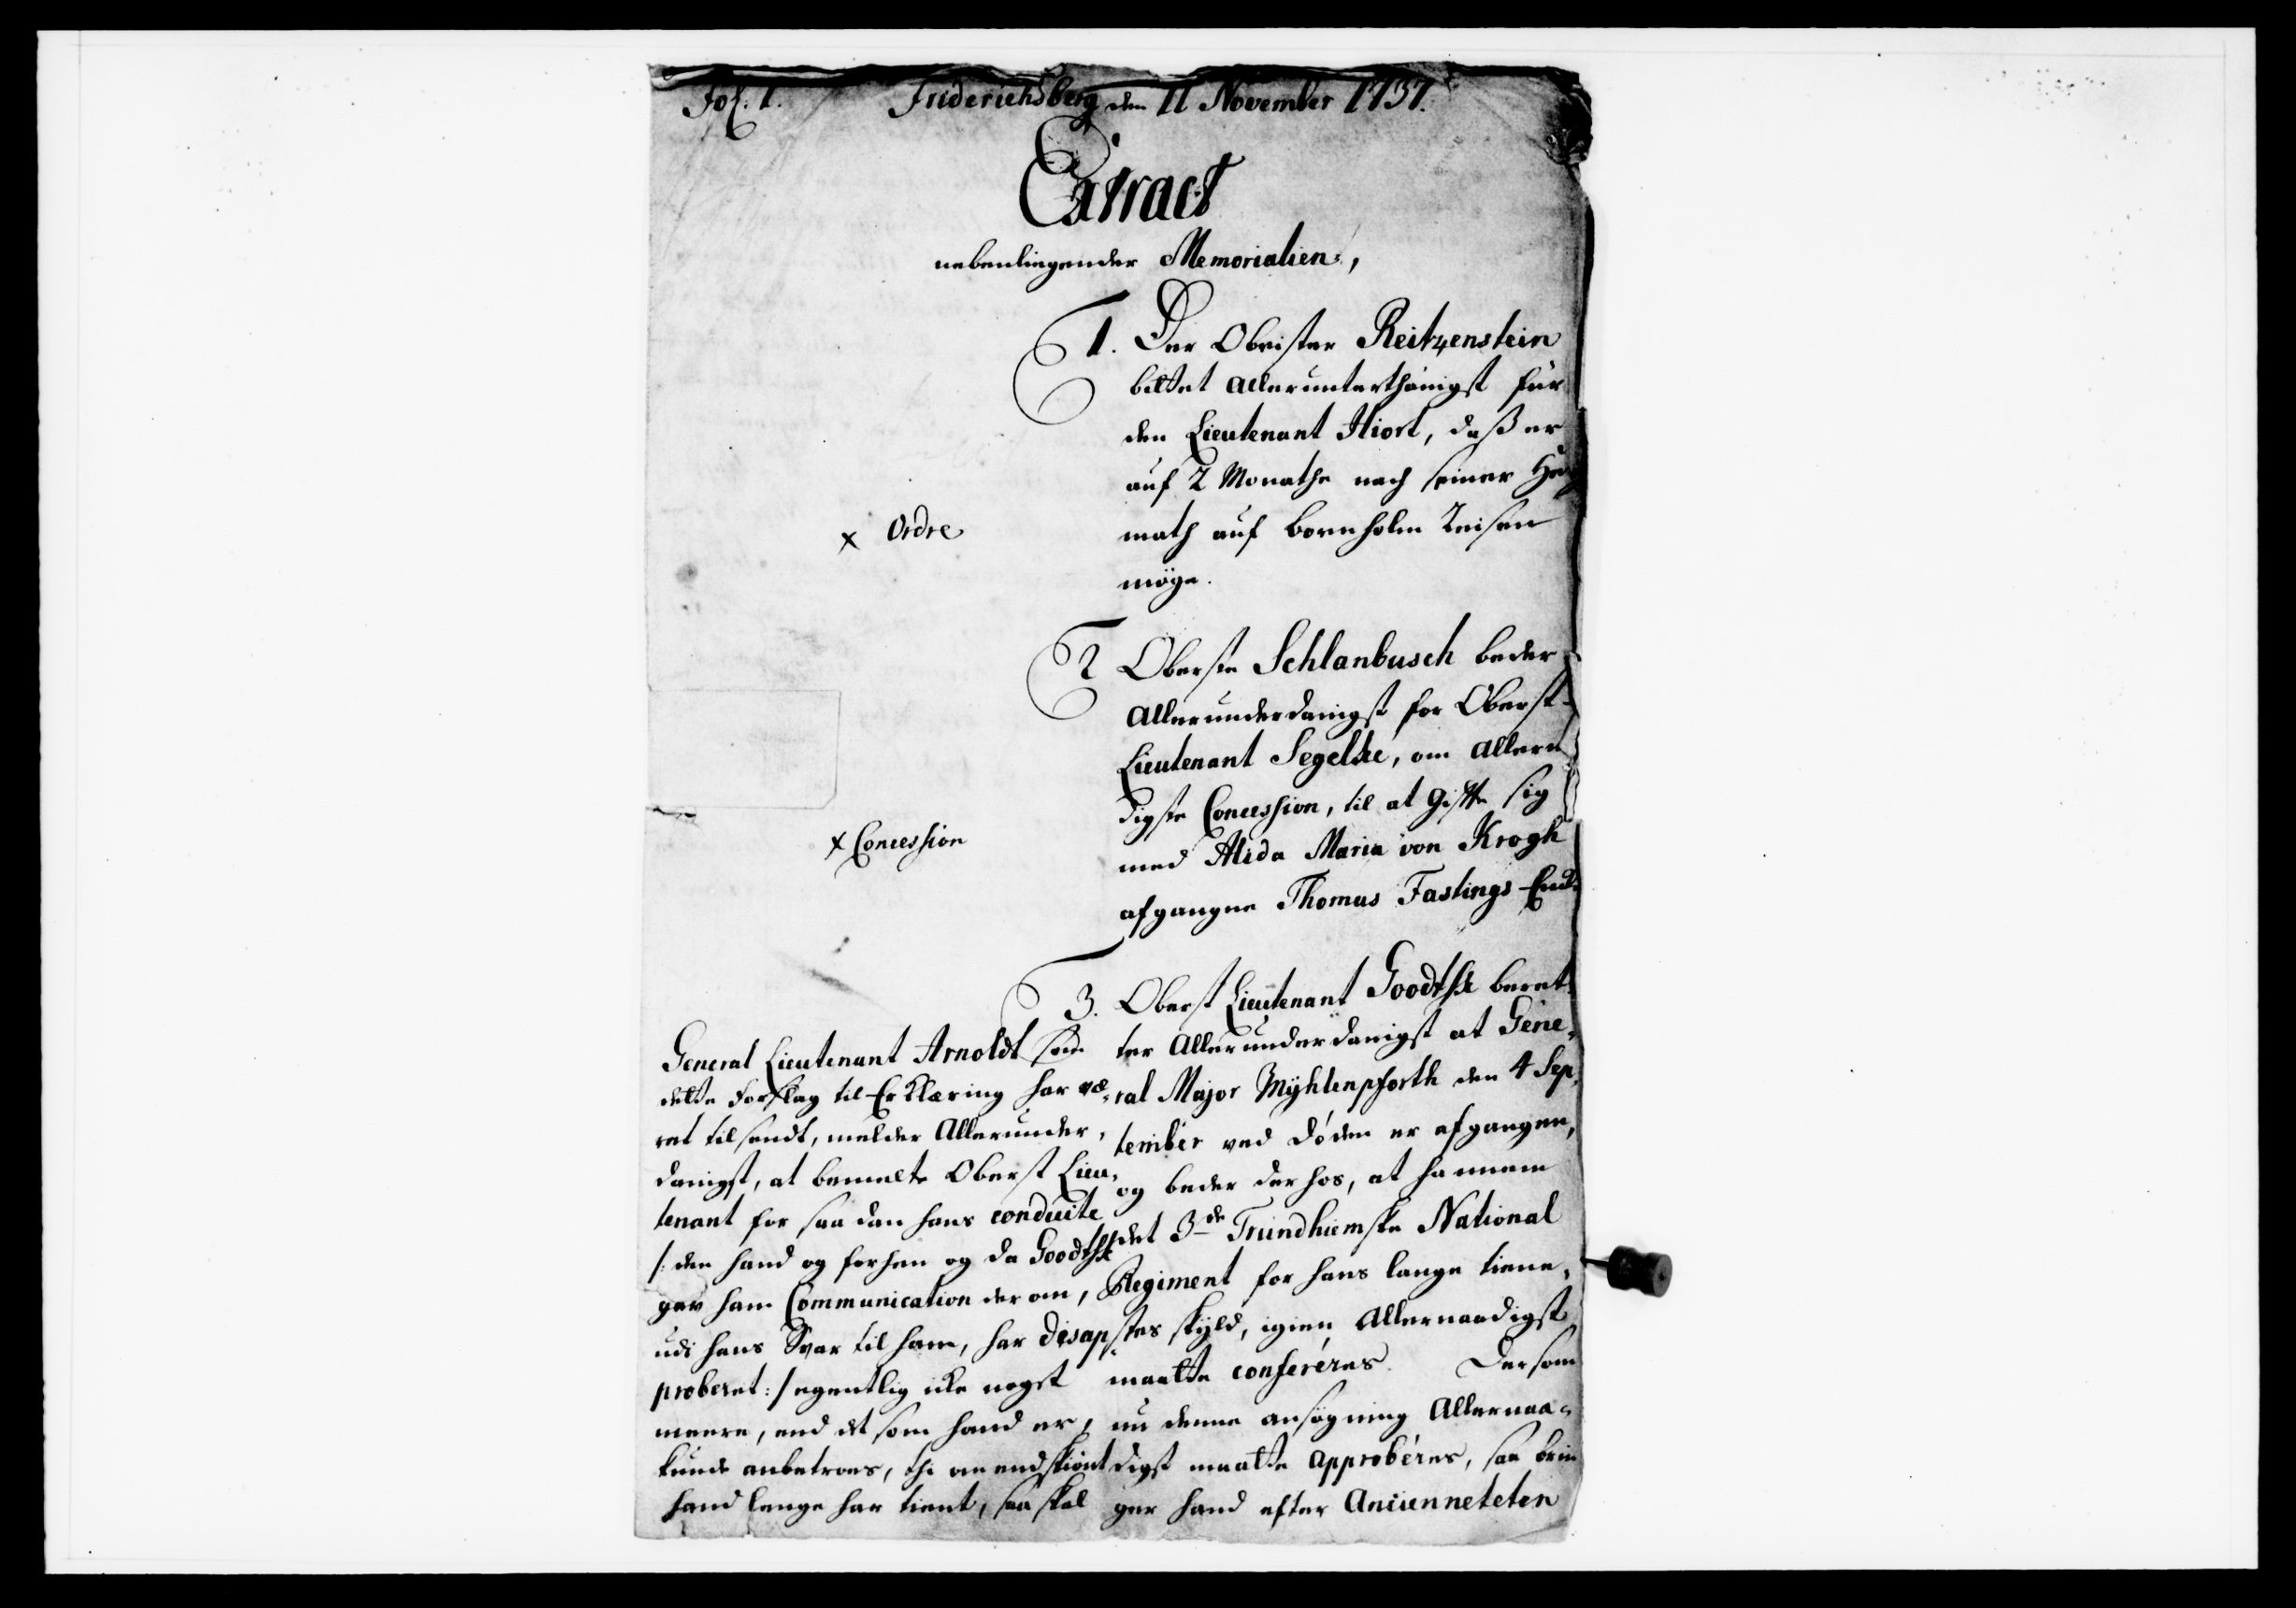 Fol. 1.
Friderichsberg den 11 November 1737.
Extract
nebenliegender Memorialien,
1. Der Obrister Reitzenstein
bittet allerunterthänigst für
den Lieutenant Hiort, daß er
auf 2 Monathe nach seiner Hei
math auf Bornholm Reisen
möge.
x Ordre
2 Oberste Schlanbusch beder
Allerunderdanigst for Oberst-
Lieutenant Segelke, om Allern
digste Concession, til at gifte sig
med Alida Maria von Krogh
afgangne Thomas Fastings Enke
x Concession
3. Oberst Lieutenant Goodtsk beret
ter Allerunderdanigst at Gene,
ral Major Mÿhlenpforth den 4 Sep,
tember ved Døden er afgangen,
og beder der hos, at hannem
det 3de Trundhiemske National
Regiment for hans lange tiene,
stes skÿld, igien Allernaadigst
maatte conferéres. Dersom
nu denne ansøgning Allernaa-
digst maatte approbéres, saa brin
ger hand efter Ancienneteten
General Lieutenant Arnoldt som
dette Forslag til Erklæring har væ,
ret tilsendt, melder Allerunder,
danigst, at bemelte Oberst Lieu,
tenant for saadan hans conduite
/: den hand og forhen og da Goodtsk
gav ham Communication der om,
udi hans Svar til ham, har disap
proberet :/ egentlig icke noget
meere, end det som hand er,
kunde anbetroes, thi omendskiønt
hand lenge har tient, saa skal